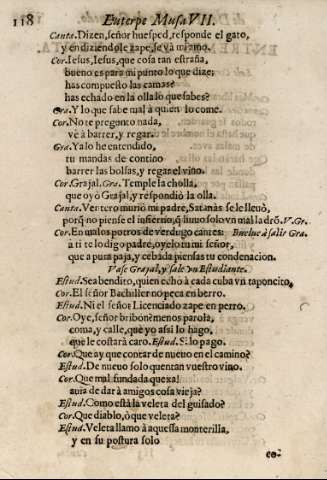 118 Euterpe Musa VII.
Canta. Dizen, señor huesped, responde el gato,
y en diziendole zape, se và mi amo.
Cor. Iesus, Iesus, que cosa tan estraña,
bueno es para mi punto lo que dize;
has compuesto las camas?
has echado en la olla lo que sabes?
Gra. Y lo que sabe mal à quien lo come.
Cor. No te pregunto nada,
vè à barrer, y regar.
Gra. Ya lo he entendido,
tu mandas de contino
barrer las bolsas, y regar el vino.
Cor. Grajal. Gra. Temple la cholla,
que oyò Grajal, y respondiò la olla.
Canta. Ventero muriò mi padre, Satanàs se le lleuò,
porq̃ no piense el infierno, q̃ huuo solo vn mal ladrõ. V. Gra.
Cor. En malos potros de verdugo cantes: Bueluc à salir Gra.
à ti te lo digo padre, oyelo tu mi señor,
que a pura paja, y cebada piensas tu condenacion.
Vase Grajal, y sale vn Estudiante.
Estud. Sea bendito, quien echò à cada cuba vn taponcito.
Cor. El señor Bachiller no peca en berro.
Estud. Ni el señor Licenciado zape en perro.
Cor. Oye, señor bribon è menos parola,
coma, y calle, que yo assi lo hago,
que le costarà caro. Estud. Si lo pago.
Cor. Que ay que contar de nueuo en el camino?
Estud. De nueuo solo quentan vuestro vino.
Cor. Que mal fundada quexa!
auia de dar à amigos cosa vieja?
Estud. Como està la veleta del guisado?
Cor. Que diablo, ò que veleta?
Estud. Veleta llamo à aquessa monterilla,
y en su postura solo
co-